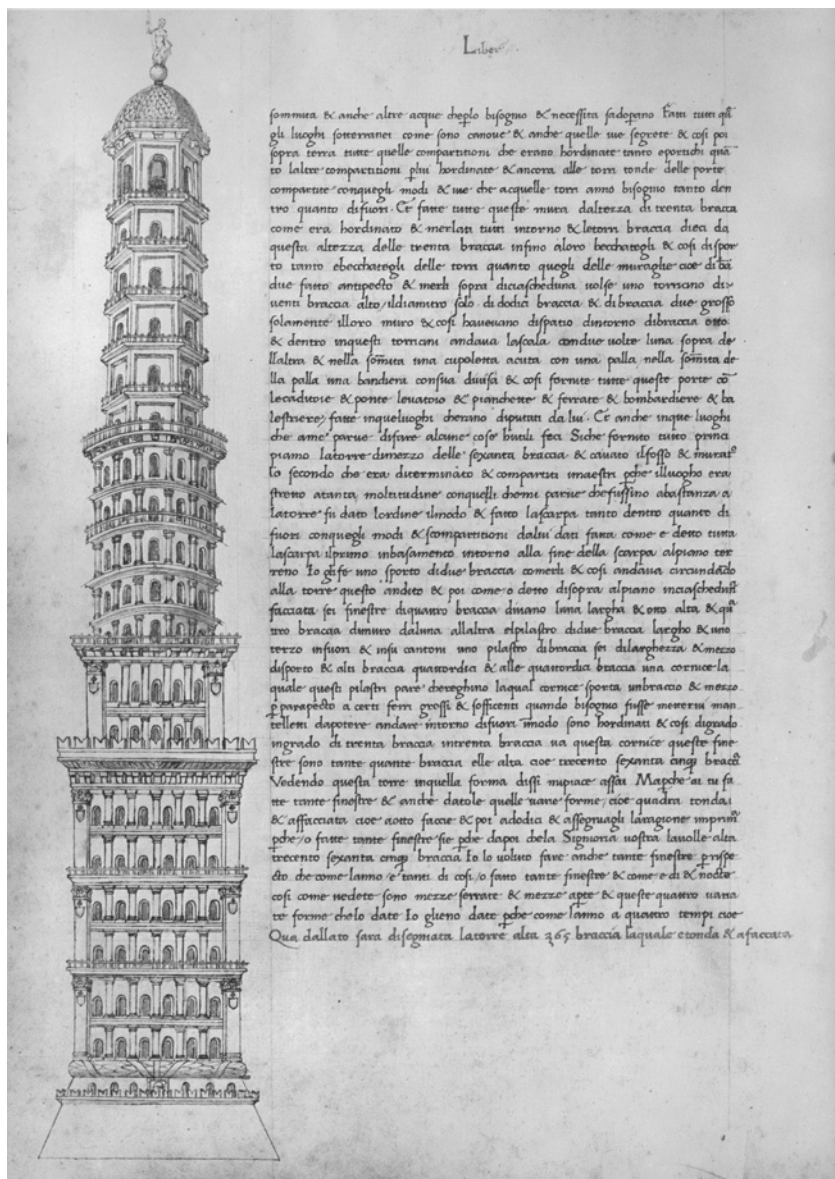 Liber
sommita & anche altre acque cheplo bisogno & necessita sadoperano Fatti tutti que
gli luoghi sotterranei come sono canove & anche quelle vie segrete & cosi poi
sopra terra tutte quelle compartitioni che erano hordinate tanto eportichi quā
to laltre compartitioni plui hordinate & ancora alle torri tonde delle porte
compartite conquegli modi & vie che acquelle torri anno bisogno tanto den
tro quanto difuori. Et fatte tutte queste mura daltezza di trenta braccia
come era hordinato & merlati tutti intorno & letorri braccia dieci da
questa altezza delle trenta braccia infino aloro becchategli & cosi dispor
to tanto ebecchategli delle torri quanto quegli delle muraglie cioe di bā
due fatto antipecto & merli sopra diciascheduna volse uno torrione di
venti braccia alto, ildiamitro solo di dodici braccia & dibraccia due grosso
solamente illoro muro & cosi havevano dispatio dintorno dibraccia otto
& dentro inquesti torrioni andava lascala condue volte luna sopra de
llaltra & nella sōmita una cupoletta acuta con una palla nella sōmita de
lla palla una bandiera consua divisa & cosi fornite tutte queste porte cō
lecaditoie & ponte levatoio & pianchette & ferrate & bombardiere & ba
lestriere, fatte inqueluoghi cherano diputati da lui. Et anche inque luoghi
che ame parve difare alcune cose hutili feci Siche fornito tutto princi
piamo latorre dimezzo delle sexanta braccia & cavato ilfosso & murato
lo secondo che era diterminato & compartiti imaestri pche illuogho era
stretto atanta moltitudine conquelli chemi parve chefussino abastanza a
latorre fu dato lordine ilmodo & fatto lascarpa tanto dentro quanto di
fuori conquegli modi & scompartitioni dalui dati fatta come e detto tutta
lascarpa ilprimo inbasamento intorno alla fine della scarpa alpiano ter
reno Io glife uno sporto didue braccia comerli & cosi andava circundādo
alla torre questo andito & poi come o detto disopra alpiano inciascheduna
facciata sei finestre diquatro braccia divano luna largha & otto alta & qua
tro braccia dimuro daluna allaltra elpilastro didue braccia largho & uno
terzo infuori & insu cantoni uno pilastro dibraccia sei dilarghezza & mezzo
disporto & alti braccia quattordici & alle quattordici braccia una cornice la
quale questi pilastri pare chereghino laqual cornice sporta unbraccio & mezzo
p parapecto a certi ferri grossi & sofficenti quando bisogno fusse mettervi man
telletti dapotere andare intorno difuori īmodo sono hordinati & cosi digrado
ingrado di trenta braccia intrenta braccia va questa cornice queste fine
stre sono tante quante braccia elle alta cioe trecento sexanta cinq̄ bracia
Vedendo questa torre inquella forma dissi mipiace assai Mapche ai tu fa
tte tante finestre & anche datole quelle varie forme, cioe quadra tonda
& affacciata cioe aotto faccie & poi adodici & assegnagli laragione imprima
pche, o fatte tante finestre sie pche dapoi chela Signoria vostra lavolle alta
trecento sexanta cinq̄ braccia Io lo voluto fare anche tante finestre prispe
cto che come lanno, e, tanti di cosi, o fatto tante finestre & come e di & nocte
cosi come vedete sono mezze serrate & mezze apte & queste quattro varia
te forme chelo date Io glieno date pche come lanno a quattro tempi cioe
Qua dallato sara disegniata latorre alta 365 braccia laquale e tonda & afaccata